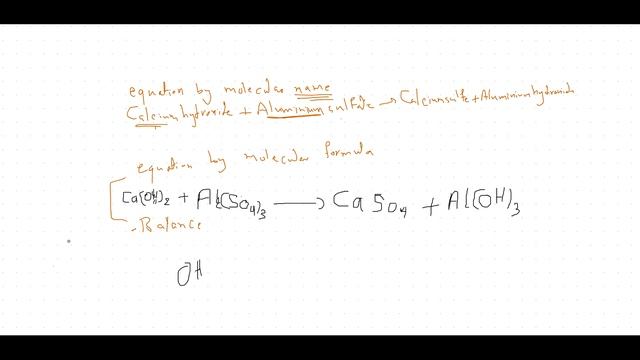 equation by molecular name
Calcium hydroxide + Aluminium sulfate → Calciumsulfe + Aluminium hydroxide
equation by molecular formula
Ca(OH)₂ + Al₂(SO₄)₃ → CaSO₄ + Al(OH)₃
- Balance
OH